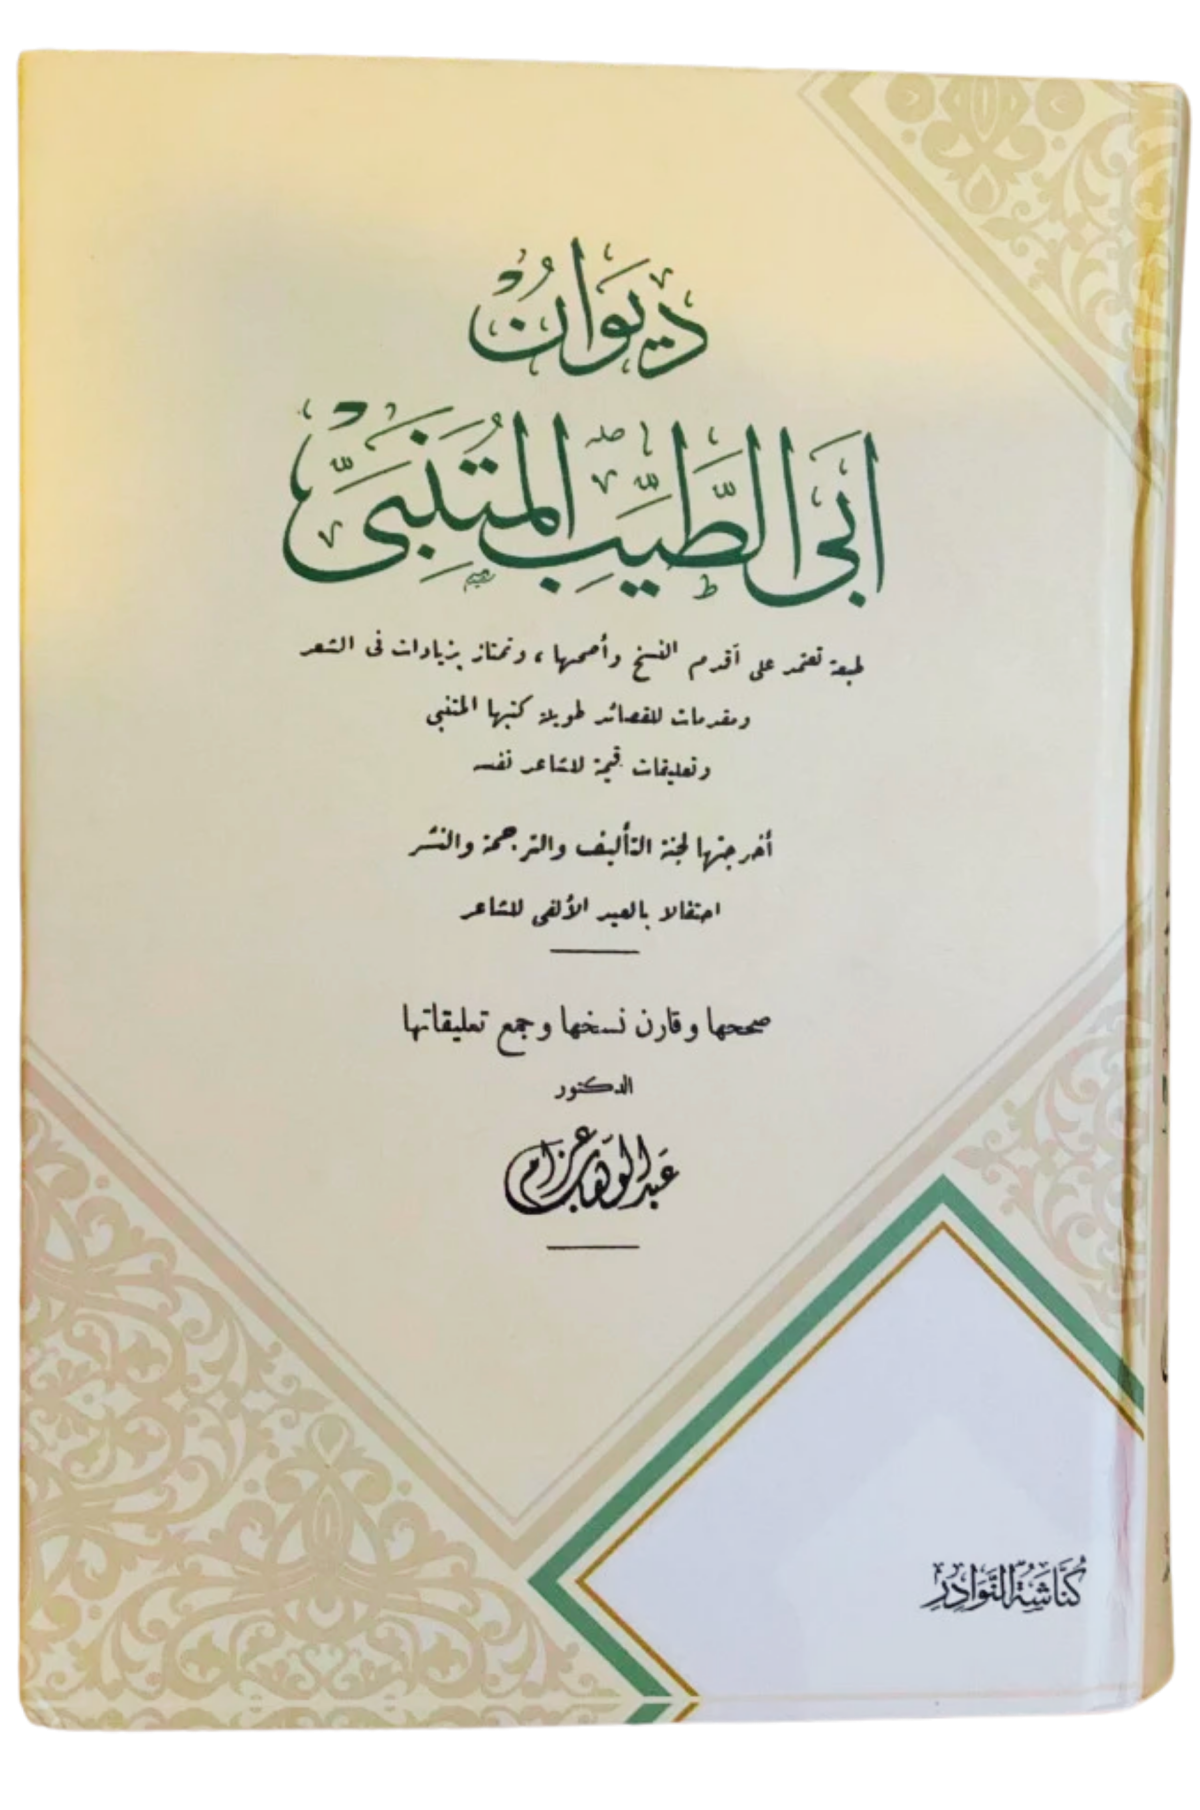 ديوان
أبى الطيب المتنبى
طبعة تعتمد على أقدم النسخ وأصحها، وتمتاز بزيادات فى الشعر
ومقدمات للقصائد طويلة كتبها المتنبى
وتعليقات قيمة للشاعر نفسه
أخرجتها لجنة التأليف والترجمة والنشر
احتفالا بالعيد الألفى للشاعر
صححها وقارن نسخها وجمع تعليقاتها
الدكتور
عبد الوهاب عزام
كُنَّاشَةُ النَّوَادِرِ